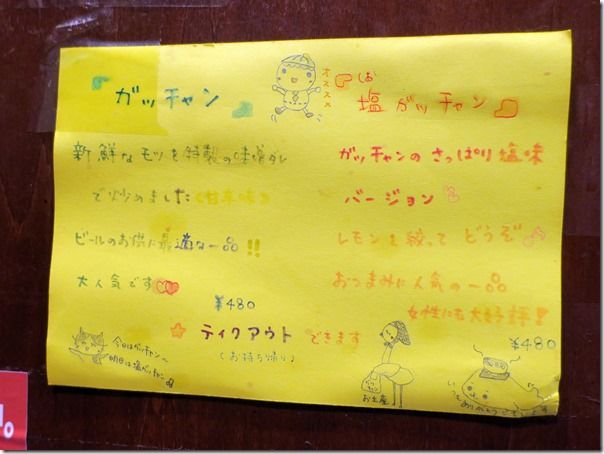 『ガッチャン』
新鮮なモツを特製の味噌ダレ
で炒めました(甘辛味)
ビールのお供に最適な一品!!
大人気です
¥480
オススメ
しお
塩ガッチャン
ガッチャンのさっぱり塩味
バージョン
レモンを絞ってどうぞ
おつまみに人気の一品
女性にも大好評!
¥480
☆テイクアウトできます
(お持ち帰り)
今日はガッチャン〜
明日は塩ガッチャン
お土産
ありがとうございます